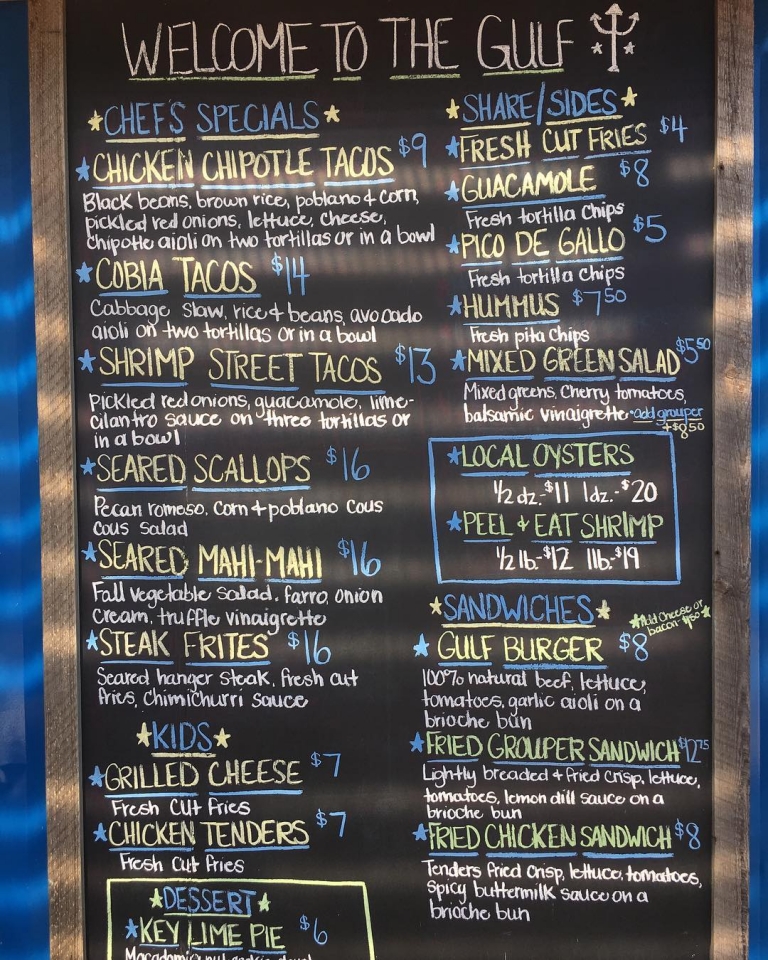 WELCOME TO THE GULF
CHEF'S SPECIALS
CHICKEN CHIPOTLE TACOS $9
Black beans, brown rice, poblano & corn,
pickled red onions, lettuce, cheese,
chipotle aioli on two tortillas or in a bowl
COBIA TACOS $14
Cabbage slaw, rice & beans, avocado
aioli on two tortillas or in a bowl
SHRIMP STREET TACOS $13
Pickled red onions, guacamole, lime-
cilantro sauce on three tortillas or
in a bowl
SEARED SCALLOPS $16
Pecan romeso, corn + poblano cous
cous salad
SEARED MAHI-MAHI $16
Fall vegetable salad, farro, onion
cream, truffle vinaigrette
STEAK FRITES $16
Seared hanger steak, fresh cut
fries, chimichurri sauce
KIDS
GRILLED CHEESE $7
Fresh cut fries
CHICKEN TENDERS $7
Fresh cut fries
DESSERT
KEY LIME PIE $6
SHARE/SIDES
FRESH CUT FRIES $4
GUACAMOLE $8
Fresh tortilla chips
PICO DE GALLO $5
Fresh tortilla chips
HUMMUS $7.50
Fresh pita chips
MIXED GREEN SALAD $5.50
Mixed greens, cherry tomatoes,
balsamic vinaigrette • add grouper
+$8.50
LOCAL OYSTERS
1/2 dz.-$11 1dz.-$20
PEEL & EAT SHRIMP
1/2 lb-$12 1lb-$19
SANDWICHES
Add cheese or
bacon $1.50
GULF BURGER $8
100% natural beef, lettuce,
tomatoes, garlic aioli on a
brioche bun
FRIED GROUPER SANDWICH $12.75
Lightly breaded & fried crisp, lettuce,
tomatoes, lemon dill sauce on a
brioche bun
FRIED CHICKEN SANDWICH $8
Tenders fried crisp, lettuce, tomatoes,
spicy buttermilk sauce on a
brioche bun